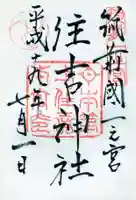 筑前國一之宮
住吉神社
平成十九年七月一日